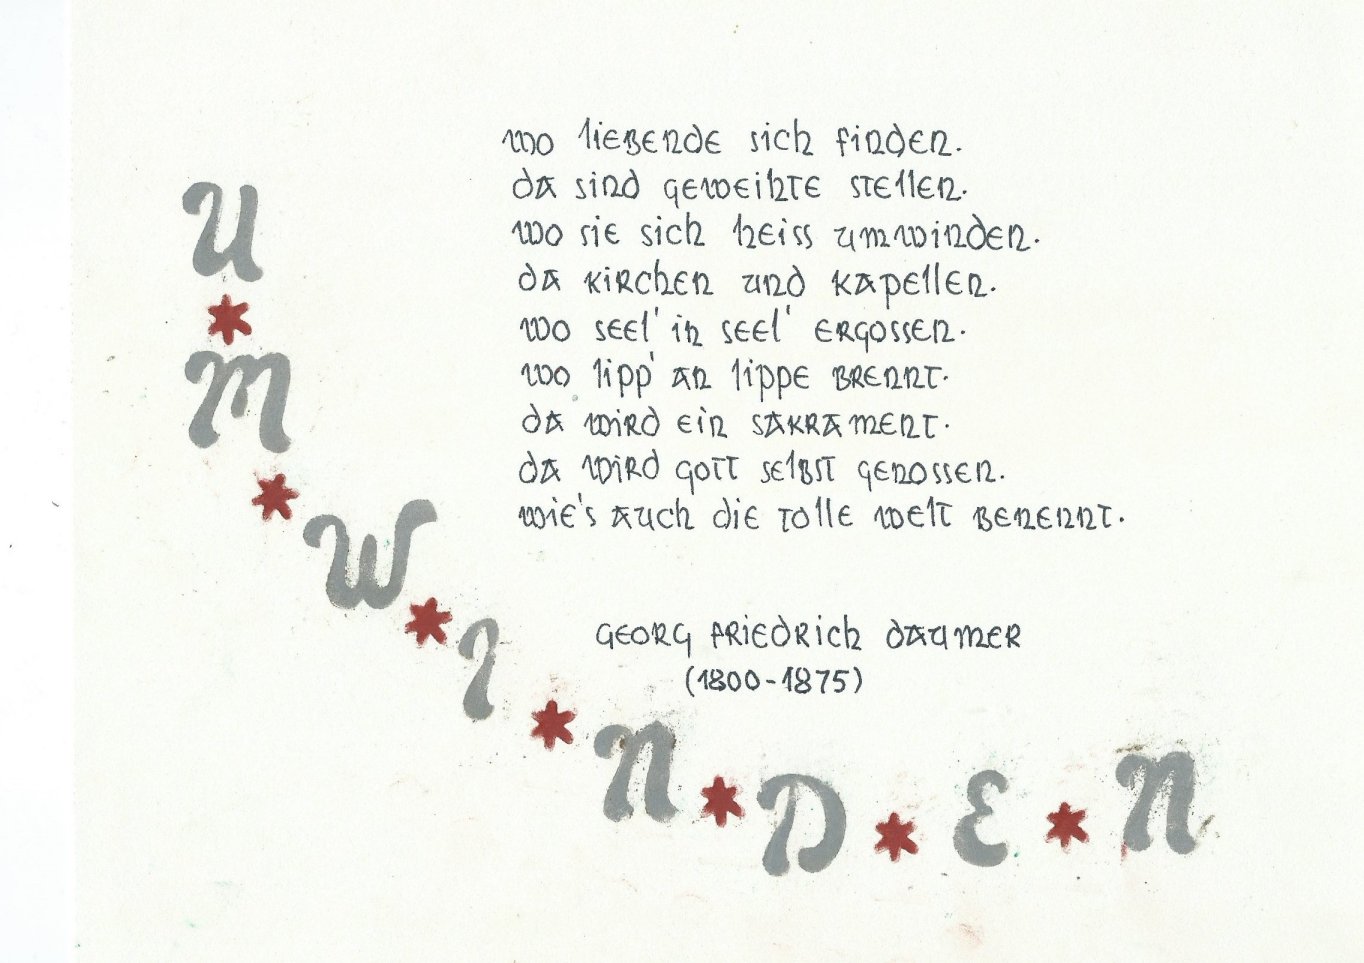 wo liebende sich finden.
da sind geweihte stellen.
wo sie sich heiss umwinden.
da kirchen und kapellen.
wo seel' in seel' ergossen.
wo lipp' an lippe brennt.
da wird ein sakrament.
da wird gott selbst genossen.
wie's auch die tolle welt benennt.
georg friedrich daumer
(1800-1875)
U*M*W*I*N*D*E*N